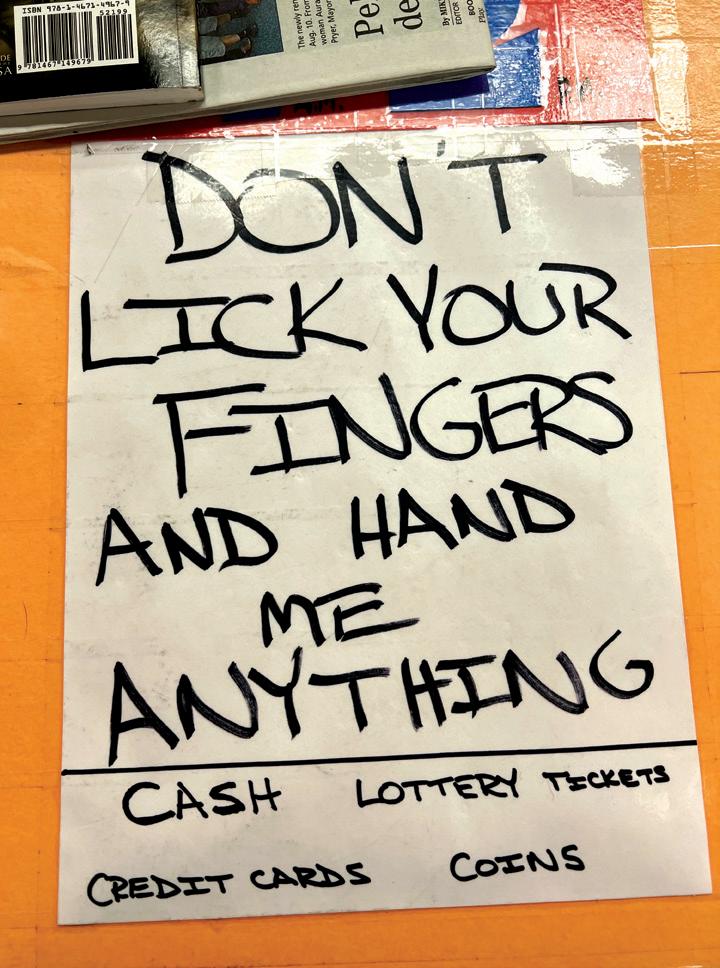 ISBN 978-1-4671-4967-9
52199
9 781467 149679
DE
SA
Aug. 10. From
woman Aura
Pryer, Mayor
Pel
de
By MIK
EDITOR
BOO
Play
DON'T
LICK YOUR
FINGERS
AND HAND
ME
ANYTHING
CASH LOTTERY TICKETS
CREDIT CARDS COINS